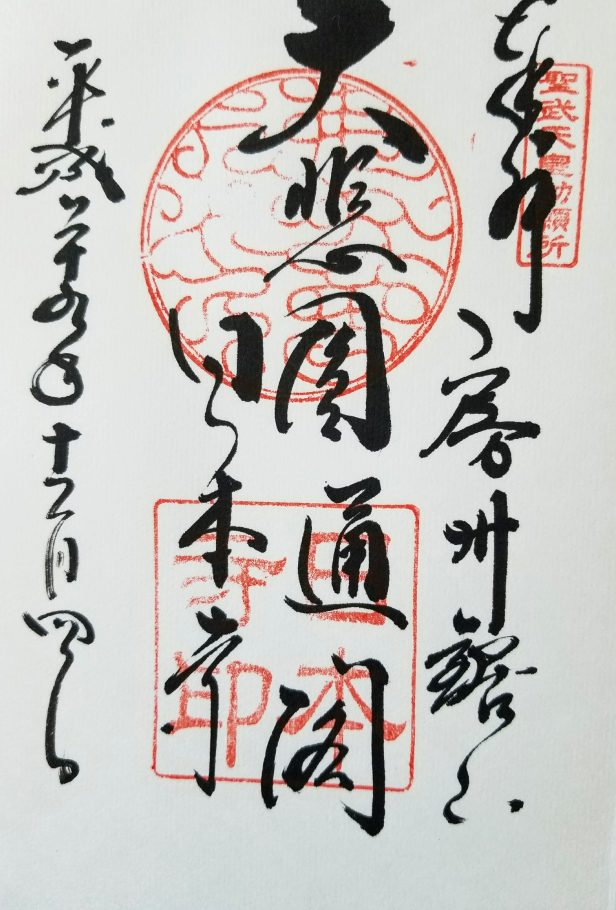 聖武天皇勅願所
奉拝 房州鋸山
大悲圓通閣
日本寺
日本寺印
平成二十九年十二月四日